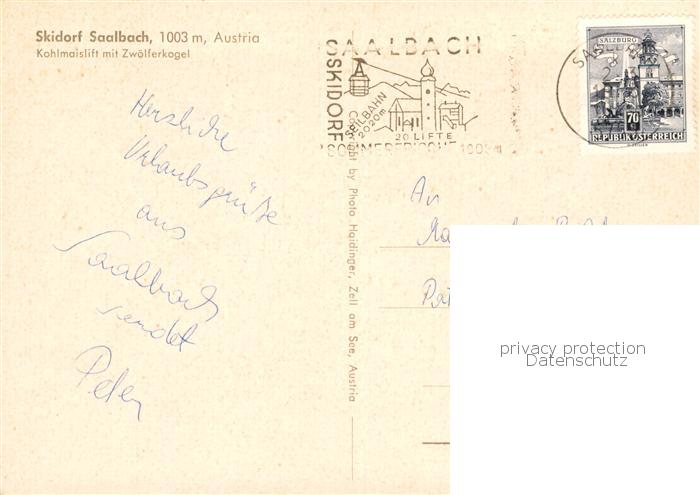 Skidorf Saalbach, 1003 m, Austria
Kohlmaislift mit Zwölferkogel
SAALBACH
SKIDORF
SEILBAHN
2020m
20 LIFTE
SOMMERFRISCHE 1003m
SALZBURG
70
REPUBLIK ÖSTERREICH
Herzliche
Urlaubsgrüße
aus
Saalbach
sendet
Peter
Copyright by Photo Haidinger, Zell am See, Austria
An
privacy protection
Datenschutz